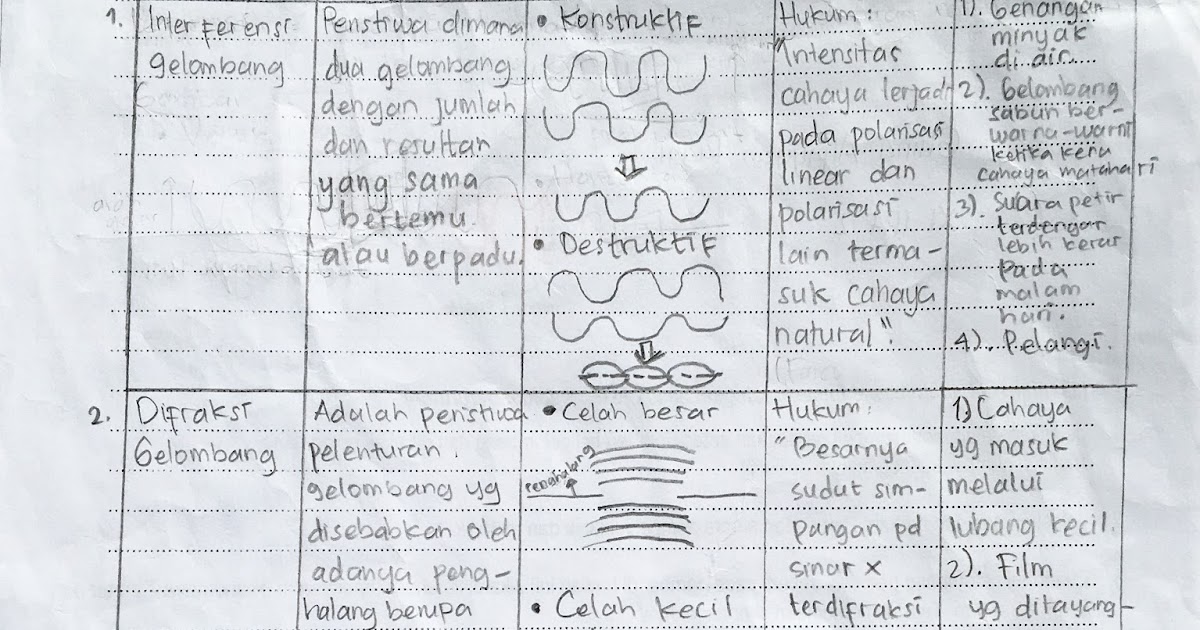 1.
Interferensi
gelombang
Peristiwa dimana
dua gelombang
dengan jumlah
dan resultan
yang sama
bertemu
atau berpadu.
• Konstruktif
• Destruktif
Hukum:
"Intensitas
cahaya terjadi
pada polarisasi
linear dan
polarisasi
lain terma-
suk cahaya
natural".
1). Genangan
minyak
di air.
2). Gelombang
sabun ber-
warna-warni
ketika kena
cahaya matahari
3). Suara petir
terdengar
lebih keras
pada
malam
hari.
4). Pelangi.
2.
Difraksi
Gelombang
Adalah peristiwa
pelenturan.
gelombang yg
disebabkan oleh
adanya peng-
halang berupa
• Celah besar
penghalang
• Celah kecil
Hukum:
"Besarnya
sudut sim-
pangan pd
sinar x
terdifraksi
1) Cahaya
yg masuk
melalui
lubang kecil.
2). Film
yg ditayang-